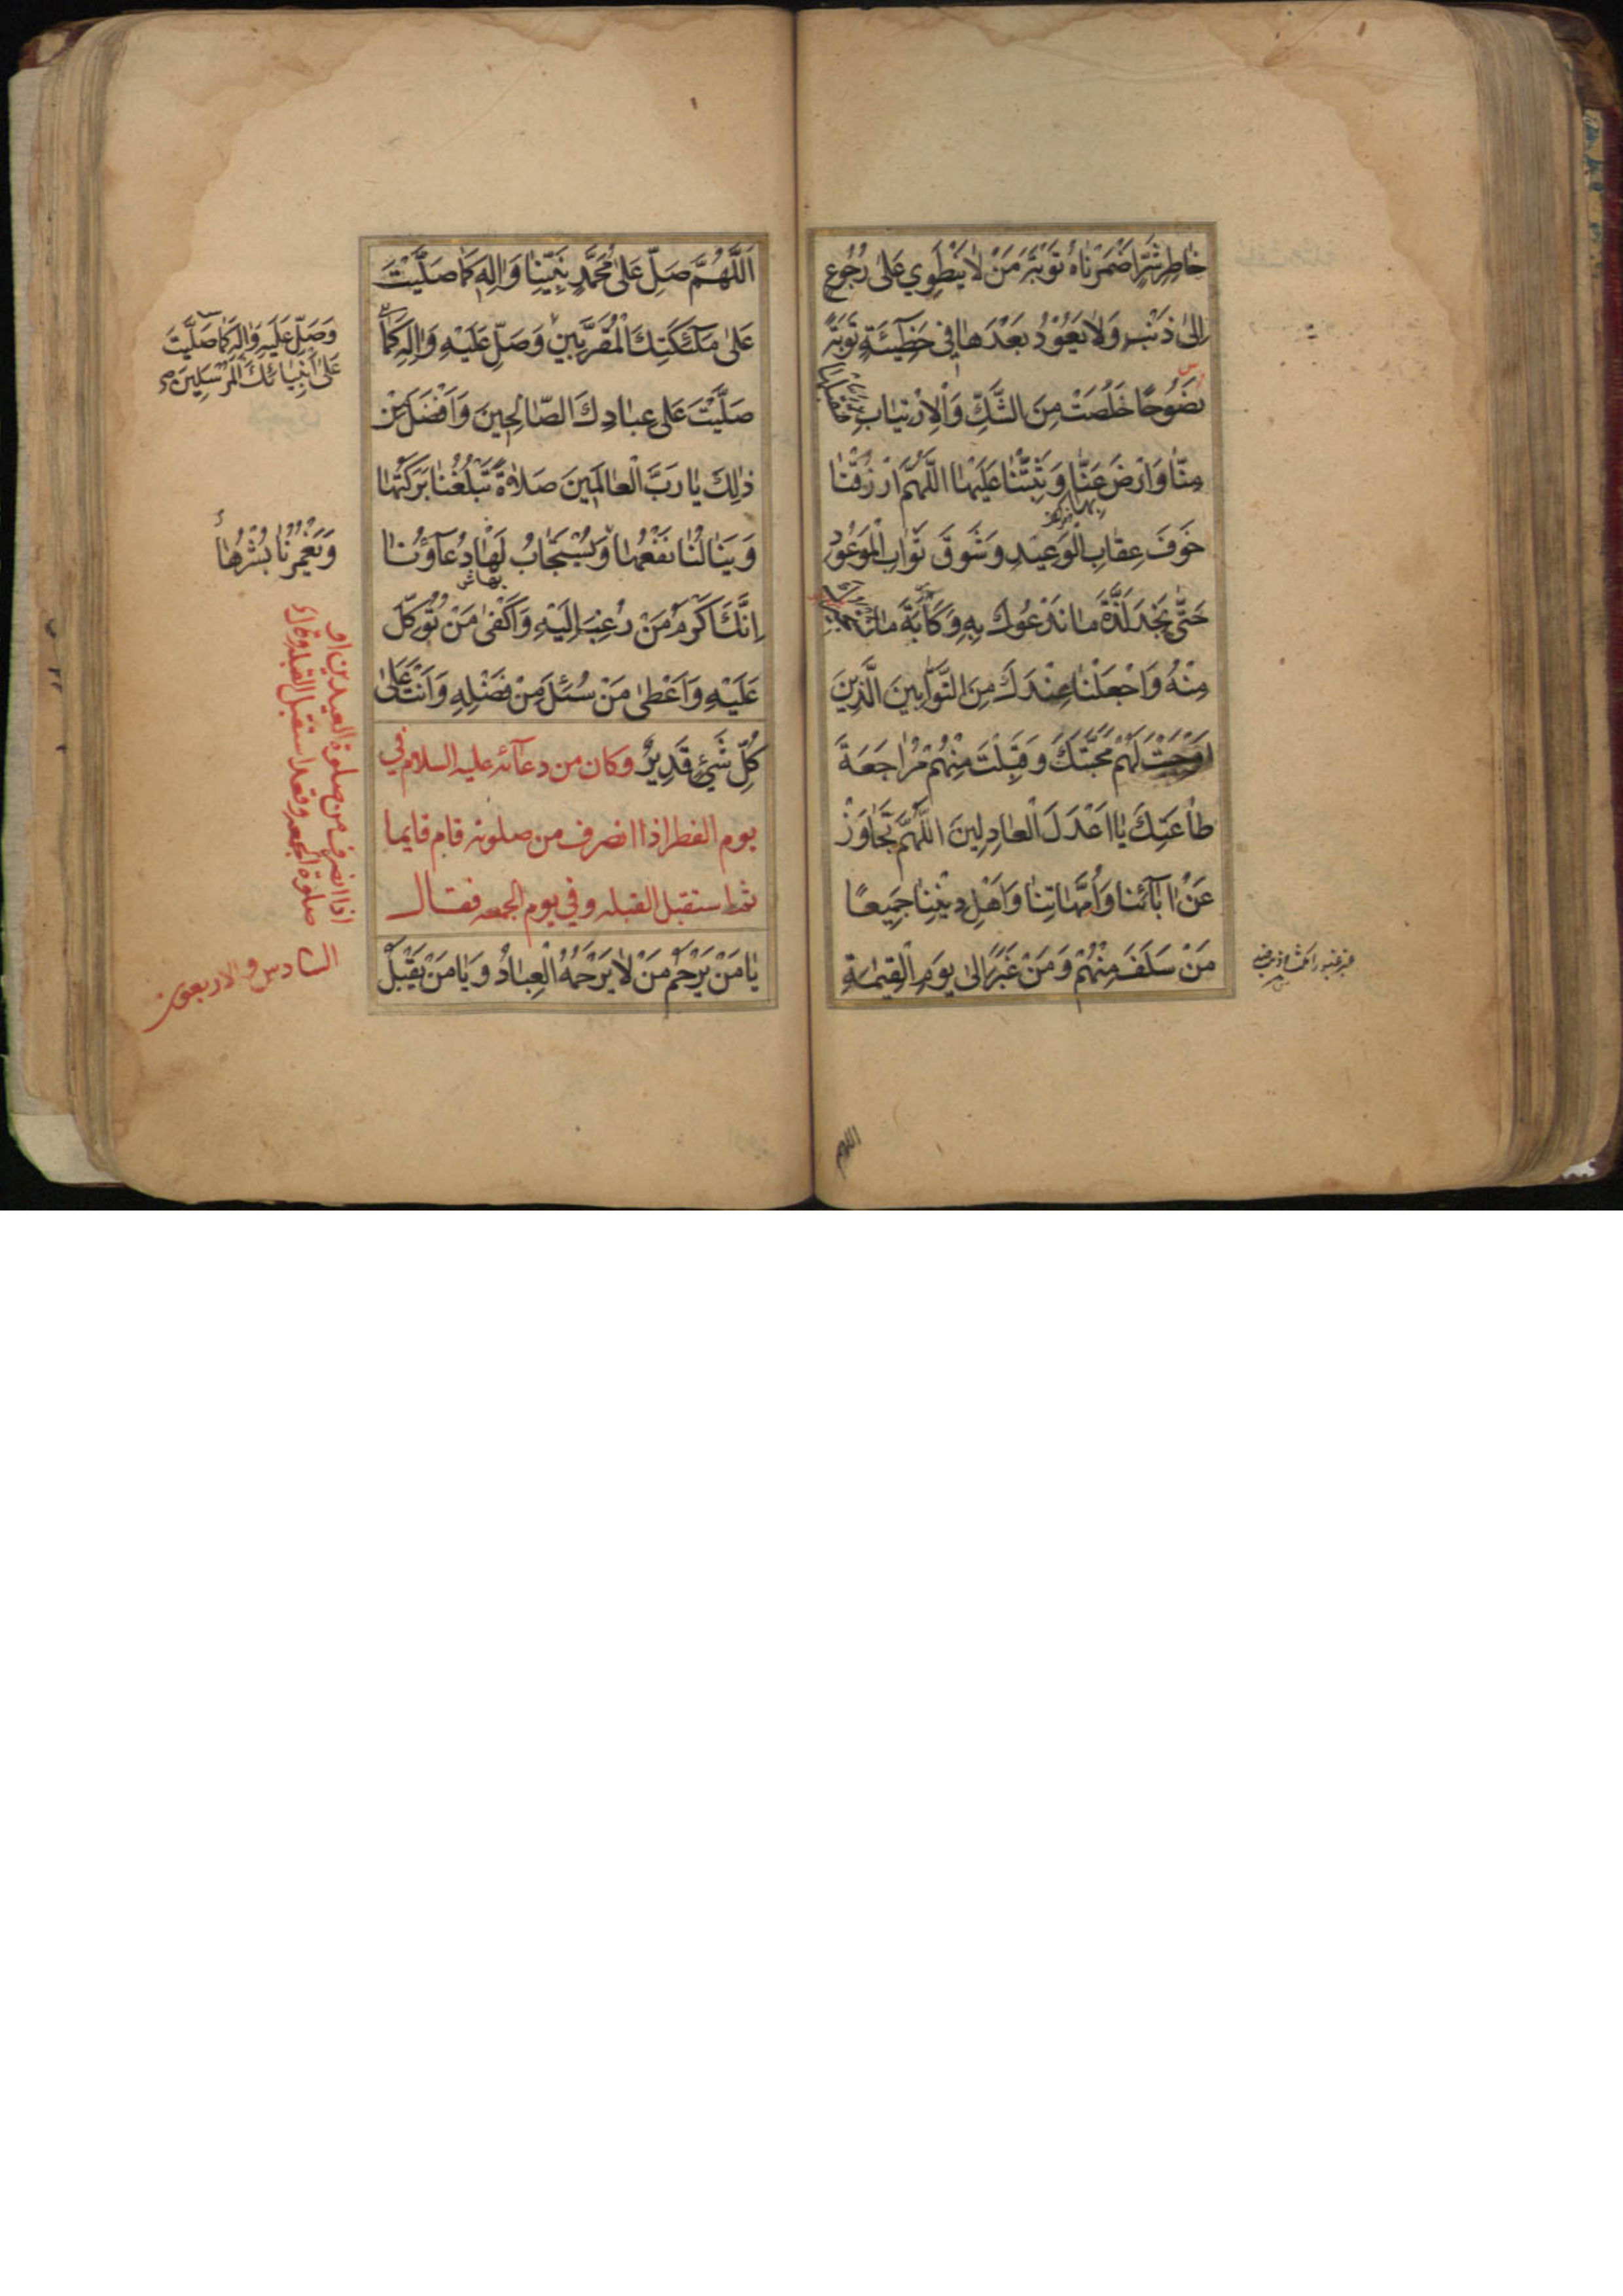 خٰاطِرِ شَرٍّ اَضْمَرْنٰاهُ تَوْبَةَ مَنْ لٰا يَنْطَوِي عَلىٰ رُجُوعٍ
اِلىٰ ذَنْبٍ وَلٰا يَعُوْدُ بَعْدَهٰا فِي خَطِيۤئَةٍ تَوْبَةً
نَصُوْحًا خَلُصَتْ مِنَ الشَّكِّ وَالْاِرْتِيٰابِ
مِنّٰا وَارْضَ عَنّٰا وَثَبِّتْنٰا عَلَيْهٰا اَللّٰهُمَّ ارْزُقْنٰا
خَوْفَ عِقٰابِ الْوَعِيْدِ وَشَوْقَ ثَوٰابِ الْمَوْعُوْدِ
حَتّٰى نَجِدَ لَذَّةَ مٰا نَدْعُوْكَ بِهِ وَكَاٰبَةَ مٰا
مِنْهُ وَاجْعَلْنٰا عِنْدَكَ مِنَ التَّوّٰابِيْنَ الَّذِيْنَ
اَوْجَبْتَ لَهُمْ مَحَبَّتَكَ وَقَبِلْتَ مِنْهُمْ مُرٰاجَعَةَ
طٰاعَتِكَ يٰا اَعْدَلَ الْعٰادِلِيْنَ اَللّٰهُمَّ تَجٰاوَزْ
عَنْ اٰبٰآئِنٰا وَاُمَّهٰاتِنٰا وَاَهْلِ دِيْنِنٰا جَمِيْعًا
مَنْ سَلَفَ مِنْهُمْ وَمَنْ غَبَرَ اِلىٰ يَوْمِ الْقِيٰمَةِ
اللهم
اَللّٰهُمَّ صَلِّ عَلىٰ مُحَمَّدٍ نَبِيِّنٰا وَاٰلِهِ كَمٰا صَلَّيْتَ
عَلىٰ مَلٰٓئِكَتِكَ الْمُقَرَّبِيْنَ وَصَلِّ عَلَيْهِ وَاٰلِهِ كَمٰا
صَلَّيْتَ عَلىٰ عِبٰادِكَ الصّٰالِحِيْنَ وَاَفْضَلَ مِنْ
ذٰلِكَ يٰا رَبَّ الْعٰالَمِيْنَ صَلٰاةً تَبْلُغُنٰا بَرَكَتُهٰا
وَيَنٰالُنٰا نَفْعُهٰا وَيُسْتَجٰابُ لَهٰا دُعٰآؤُنٰا
اِنَّكَ اَكْرَمُ مَنْ رُغِبَ اِلَيْهِ وَاَكْفىٰ مَنْ تُوُكِّلَ
عَلَيْهِ وَاَعْطىٰ مَنْ سُئِلَ مِنْ فَضْلِهِ وَاَنْتَ عَلىٰ
كُلِّ شَيْئٍ قَدِيْرٌ وكان من دعآئه عليه السلام في
يوم الفطر اذا انصرف من صلوته قام قايما
ثم استقبل القبله وفي يوم الجمعه فقال
يٰا مَنْ يَرْحَمُ مَنْ لٰا يَرْحَمُهُ الْعِبٰادُ وَيٰا مَنْ يَقْبَلُ
وَصَلِّ عَلَيْهِ وَاٰلِهِ كَمٰا صَلَّيْتَ
عَلىٰ اَنْبِيٰائِكَ الْمُرْسَلِيْنَ
وَيَغْمُرُنٰا يُسْرُهٰا
اذا انصرف من صلوة العيدين او
صلوة الجمعه وقعد استقبل القبله وقال
السادس والاربعون